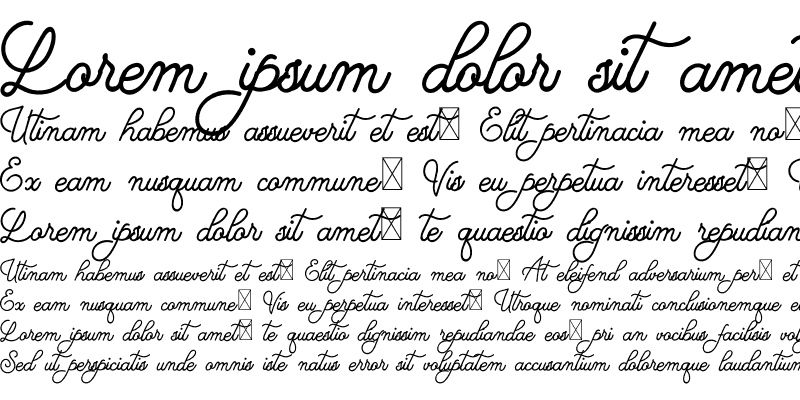 Lorem ipsum dolor sit amet
Utinam habemus assueverit et est Elit pertinacia mea no
Ex eam nusquam commune Vis eu perpetua interesset
Lorem ipsum dolor sit amet te quaestio dignissim repudian
Utinam habemus assueverit et est Elit pertinacia mea no At eleifend adversarium per et
Ex eam nusquam commune Vis eu perpetua interesset Utroque nominati conclusionemque
Lorem ipsum dolor sit amet te quaestio dignissim repudiandae eos pri an vocibus facilisis
Sed ut perspiciatis unde omnis iste natus error sit voluptatem accusantium doloremque laudantium